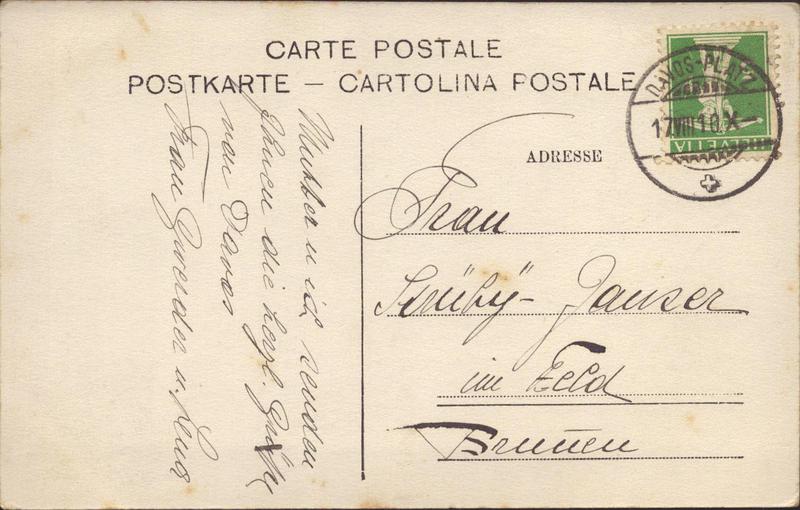 CARTE POSTALE
POSTKARTE — CARTOLINA POSTALE
DAVOS-PLATZ
17 VIII 10 X—
HELVETIA
ADRESSE
Frau
Janser
im Feld
Brunnen
Mutter u ich senden
Ihnen die herzl. Grüße
von Davos
Frau u.